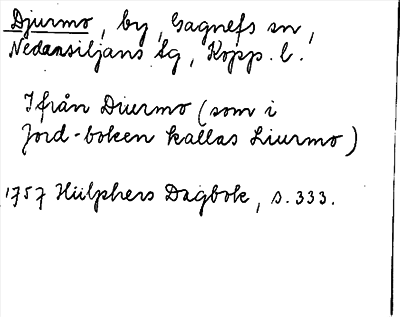 Djurmo, by, Gagnefs sn,
Nedansiljans tg, Kopp. l.
Ifrån Diurmo (som i
Jord-boken kallas Liurmo)
1757 Hülphers Dagbok, s. 333.